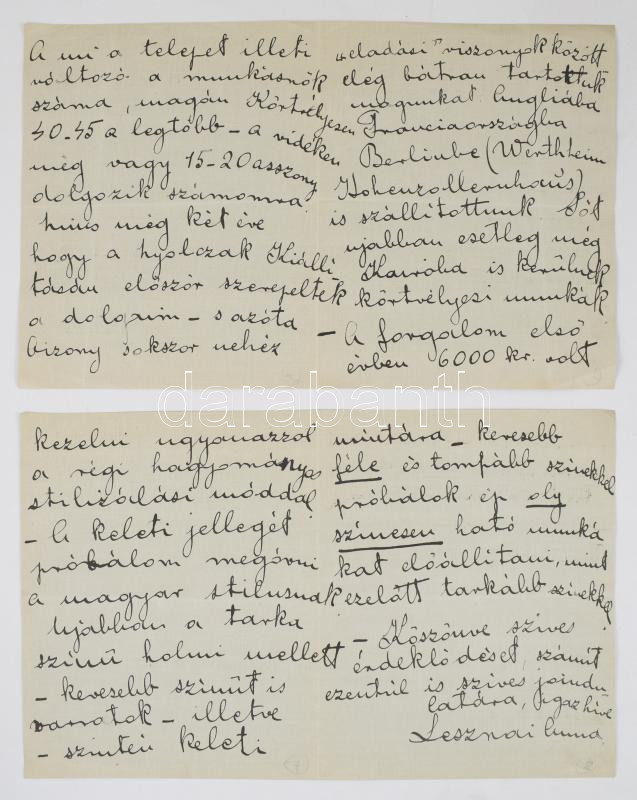 A mi a telepet illeti
változó a munkásnők
száma, magán Körtvélyesen
40-45 a legtöbb – a vidéken
még vagy 15-20 asszony
dolgozik számomra.
Nincs még két éve
hogy a nyolczak Kiállí
tásán először szerepeltek
a dolgaim – s azóta
bizony sokszor nehéz
„eladási" viszonyok között
elég bátran tartottuk
magunkat. Angliába
Franciaországba
Berlinbe (Werthheim
Hohenzollernhaus)
is szállítottunk. Sőt
ujabban esetleg még
Kairóba is kerülnek
körtvélyesi munkák
– A forgalom első
évben 6000 kr. volt
darabanth
kezelni ugyanazzal
a régi hagyományos
stilizálási móddal
– A keleti jellegét
próbálom megóvni
a magyar stilusnak
Ujabban a tarka
színű holmi mellett
– kevesebb színűt is
varratok – illetve
– szintén keleti
mintára – kevesebb
féle és tompább színekkel
próbálok ép oly
színesen ható munká
kat előállítani, mint
ezelőtt tarkább színekkel
– Köszönve szíves
érdeklődését, számít
ezentúl is szíves joindu
latára, igaz híve
Lesznai Anna